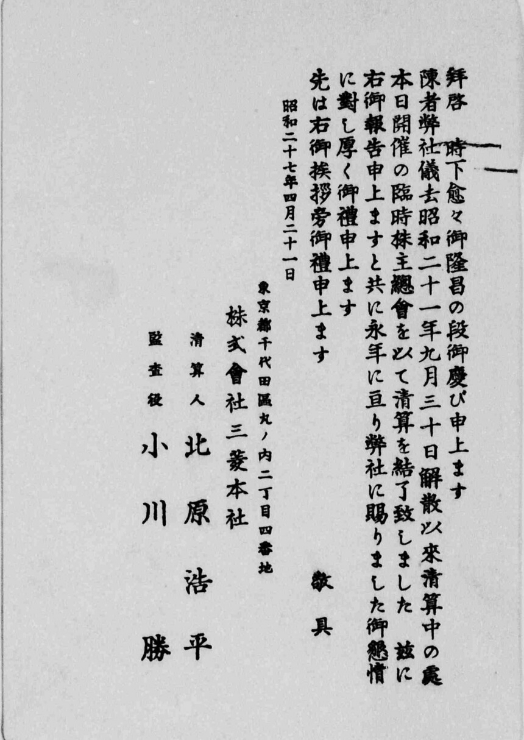 拜啓　時下愈々御隆昌の段御慶び申上ます
陳者弊社儀去昭和二十一年九月三十日解散以來清算中の處
本日開催の臨時株主總會を以て清算を結了致しました　茲に
右御報告申上ますと共に永年に亘り弊社に賜りました御懇情
に對し厚く御禮申上ます
先は右御挨拶旁御禮申上ます
敬具
昭和二十七年四月二十一日
東京都千代田區丸ノ内二丁目四番地
株式會社三菱本社
清算人　北原浩平
監査役　小川勝